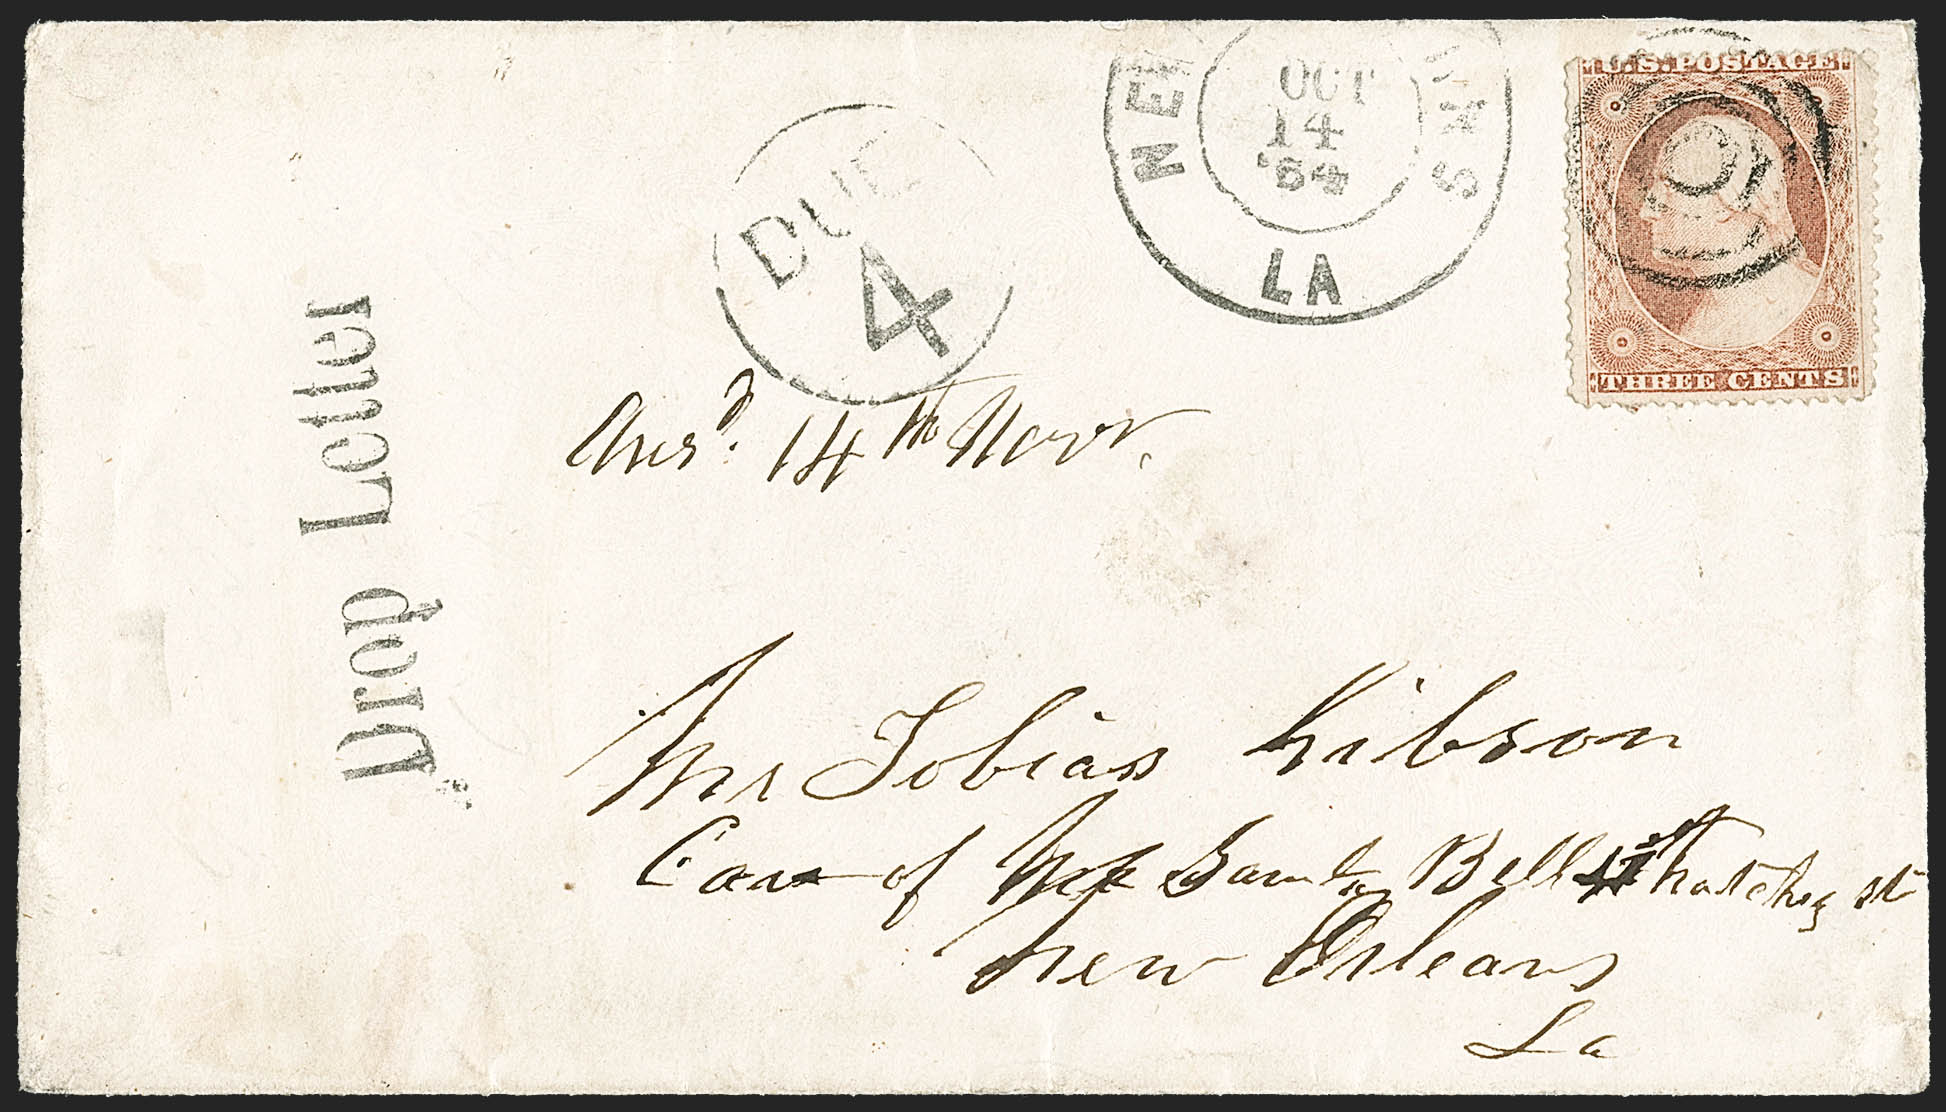 NEW
OCT
14
'64
LA
U.S. POSTAGE
THREE CENTS
DUE
4
Drop Letter
Ansd. 14th Novr.
Mr Tobias Gibson
Care of Mr Saml Bell Natchez st
New Orleans
La